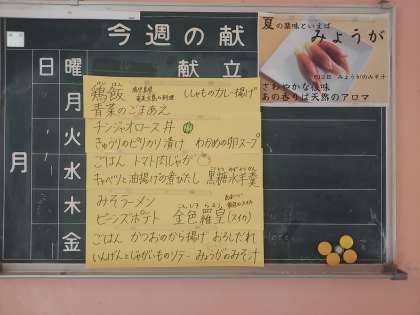 今週の献
立
日
曜
月
月
火
水
木
金
鶏飯
けいはん
鹿児島県
奄美大島の料理
ししゃものカレー揚げ
青菜のごまあえ
チンジャオロース丼
きゅうりのピリカラ漬け わかめの卵スープ
ごはん トマト肉じゃが
キャベツと油揚げの煮びたし 黒糖水羊羹
みそラーメン
ビーンズポテト 金色羅皇(スイカ)
こんじきらおう
ごはん かつおのから揚げ おろしだれ
いんげんとじゃがいものソテー みょうがのみそ汁
夏の薬味といえば
みょうが
みょうがのみそ汁
さわやかな後味
あの香りは天然のアロマ